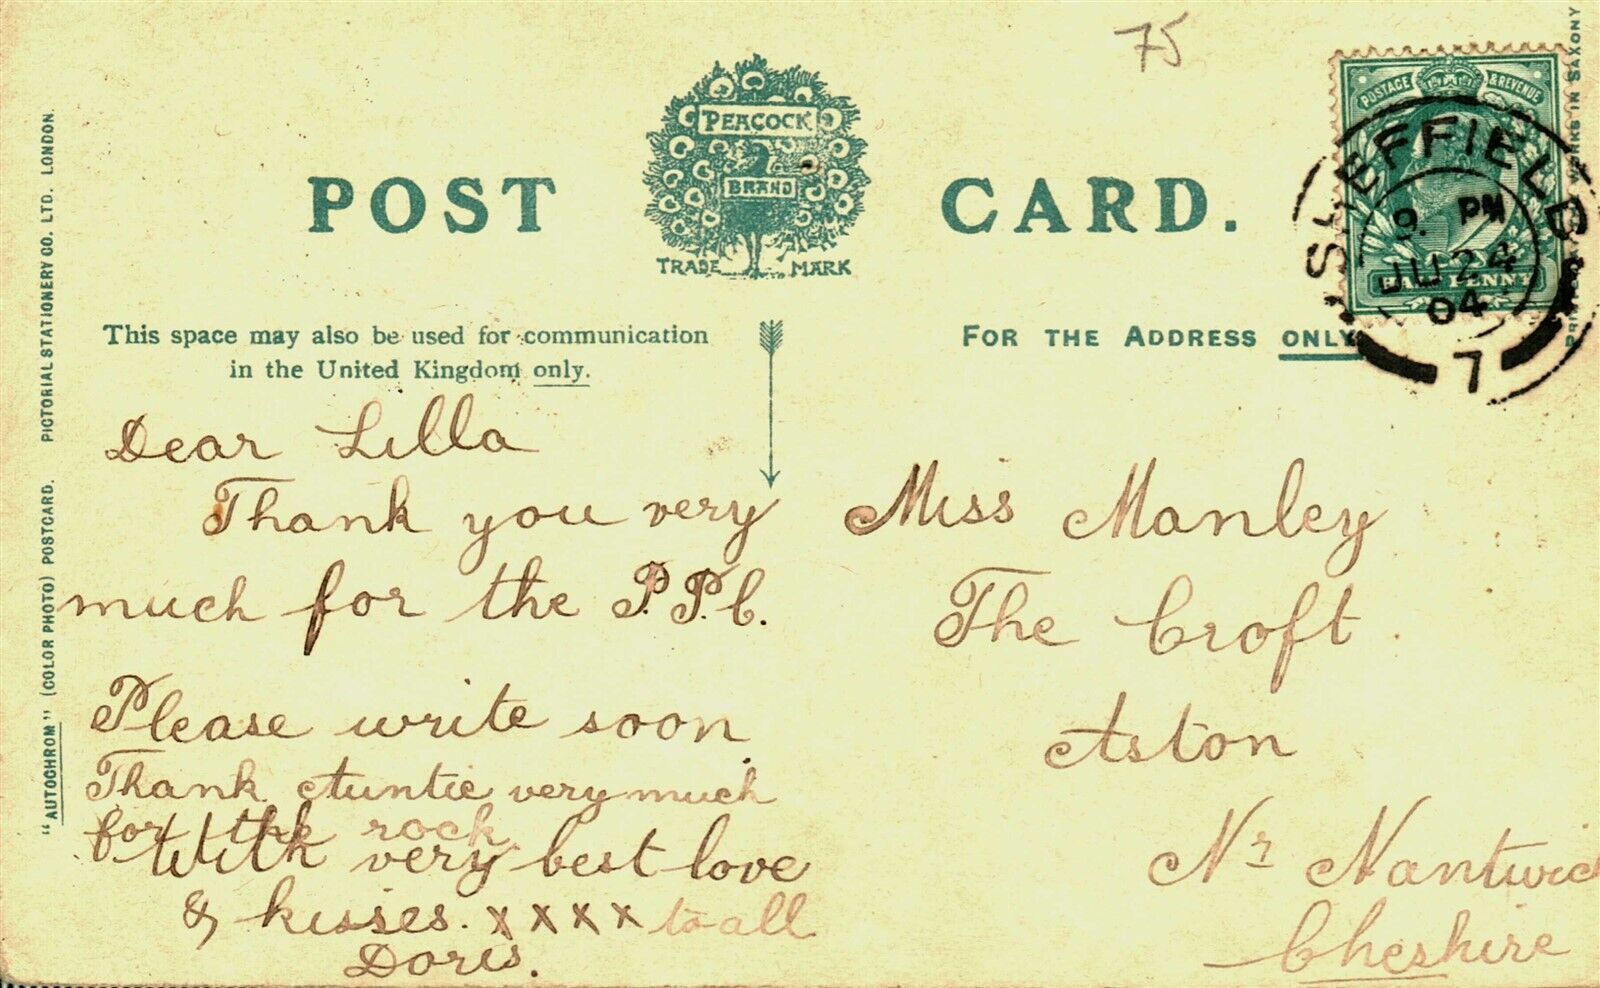 75
POST CARD.
PEACOCK
BRAND
TRADE MARK
POSTAGE & REVENUE
HALF PENNY
SHEFFIELD
9. PM
JU 24
04
7
This space may also be used for communication
in the United Kingdom only.
FOR THE ADDRESS ONLY
Dear Lilla
Thank you very
much for the P.P.C.
Please write soon
Thank Auntie very much
for the rock.
With very best love
& kisses. x x x x to all
Doris.
Miss Manley
The Croft
Aston
Nr Nantwich
Cheshire
"AUTOCHROM" (COLOR PHOTO) POSTCARD. PICTORIAL STATIONERY CO. LTD. LONDON.
WORKS IN SAXONY